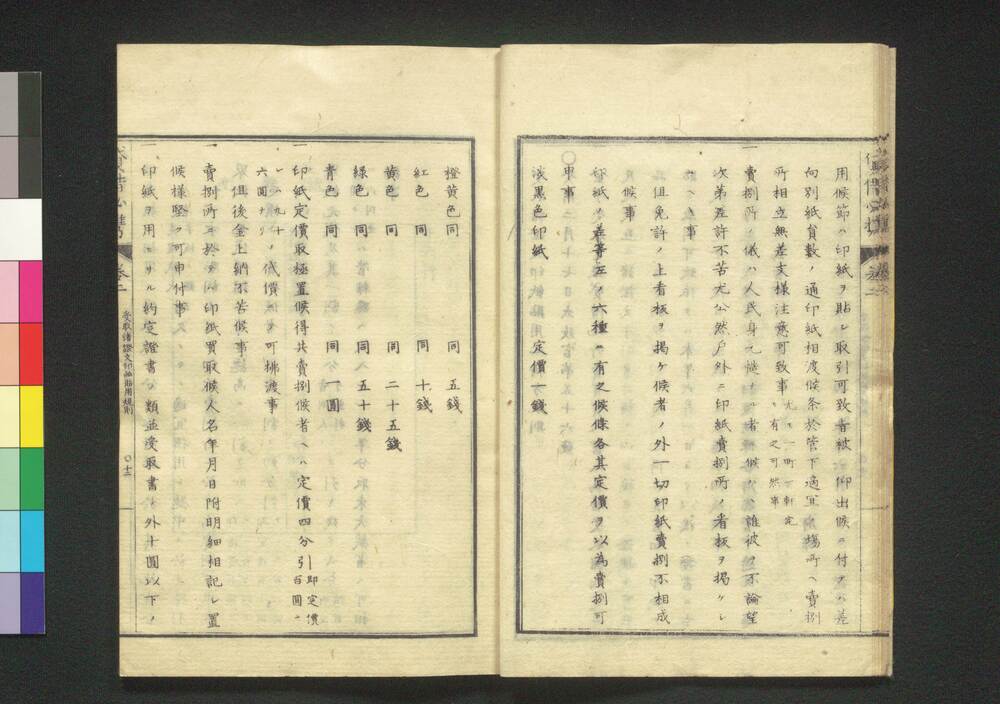 用候節ハ印紙ヲ貼シ取引可致旨被 仰出候ニ付テハ差
向別紙員數ノ通印紙相渡候条於管下適宜ノ場所ヘ賣捌
所相立無差支様注意可致事 尤一町一軒宛有之可然事
一賣捌所ノ儀ハ人民身元慥ナル者ニ候ハヽ誰彼ヲ不論望
次第差許不苦尤公然戸外ニ印紙賣捌所ノ看板ヲ揭ケシ
事
但免許ノ上看板ヲ揭ケ候者ノ外一切印紙賣捌不相成
候事
一印紙ノ差等左ノ六種ニ有之候條各其定價ヲ以為賣捌可
申事
淡黒色印紙 定價一錢
橙黄色同 同 五錢
紅色 同 同 十錢
黄色 同 同 二十五錢
緑色 同 同 五十錢
青色 同 同 一圓
一印紙定價取極置候得共賣捌候者ヘハ定價四分引 即定價百圓ニ
付九十六圓ナリ ノ低價ヲ以可拂渡事
但後金上納不苦候事
賣捌所ニ於テハ印紙買取候人名年月日附明細相記シ置
候様堅ク可申付事
一印紙ヲ用ユル約定證書ノ類並受取書ノ外十圓以下ノ
卷二
受取諸證文印紙貼用規則
〇十二